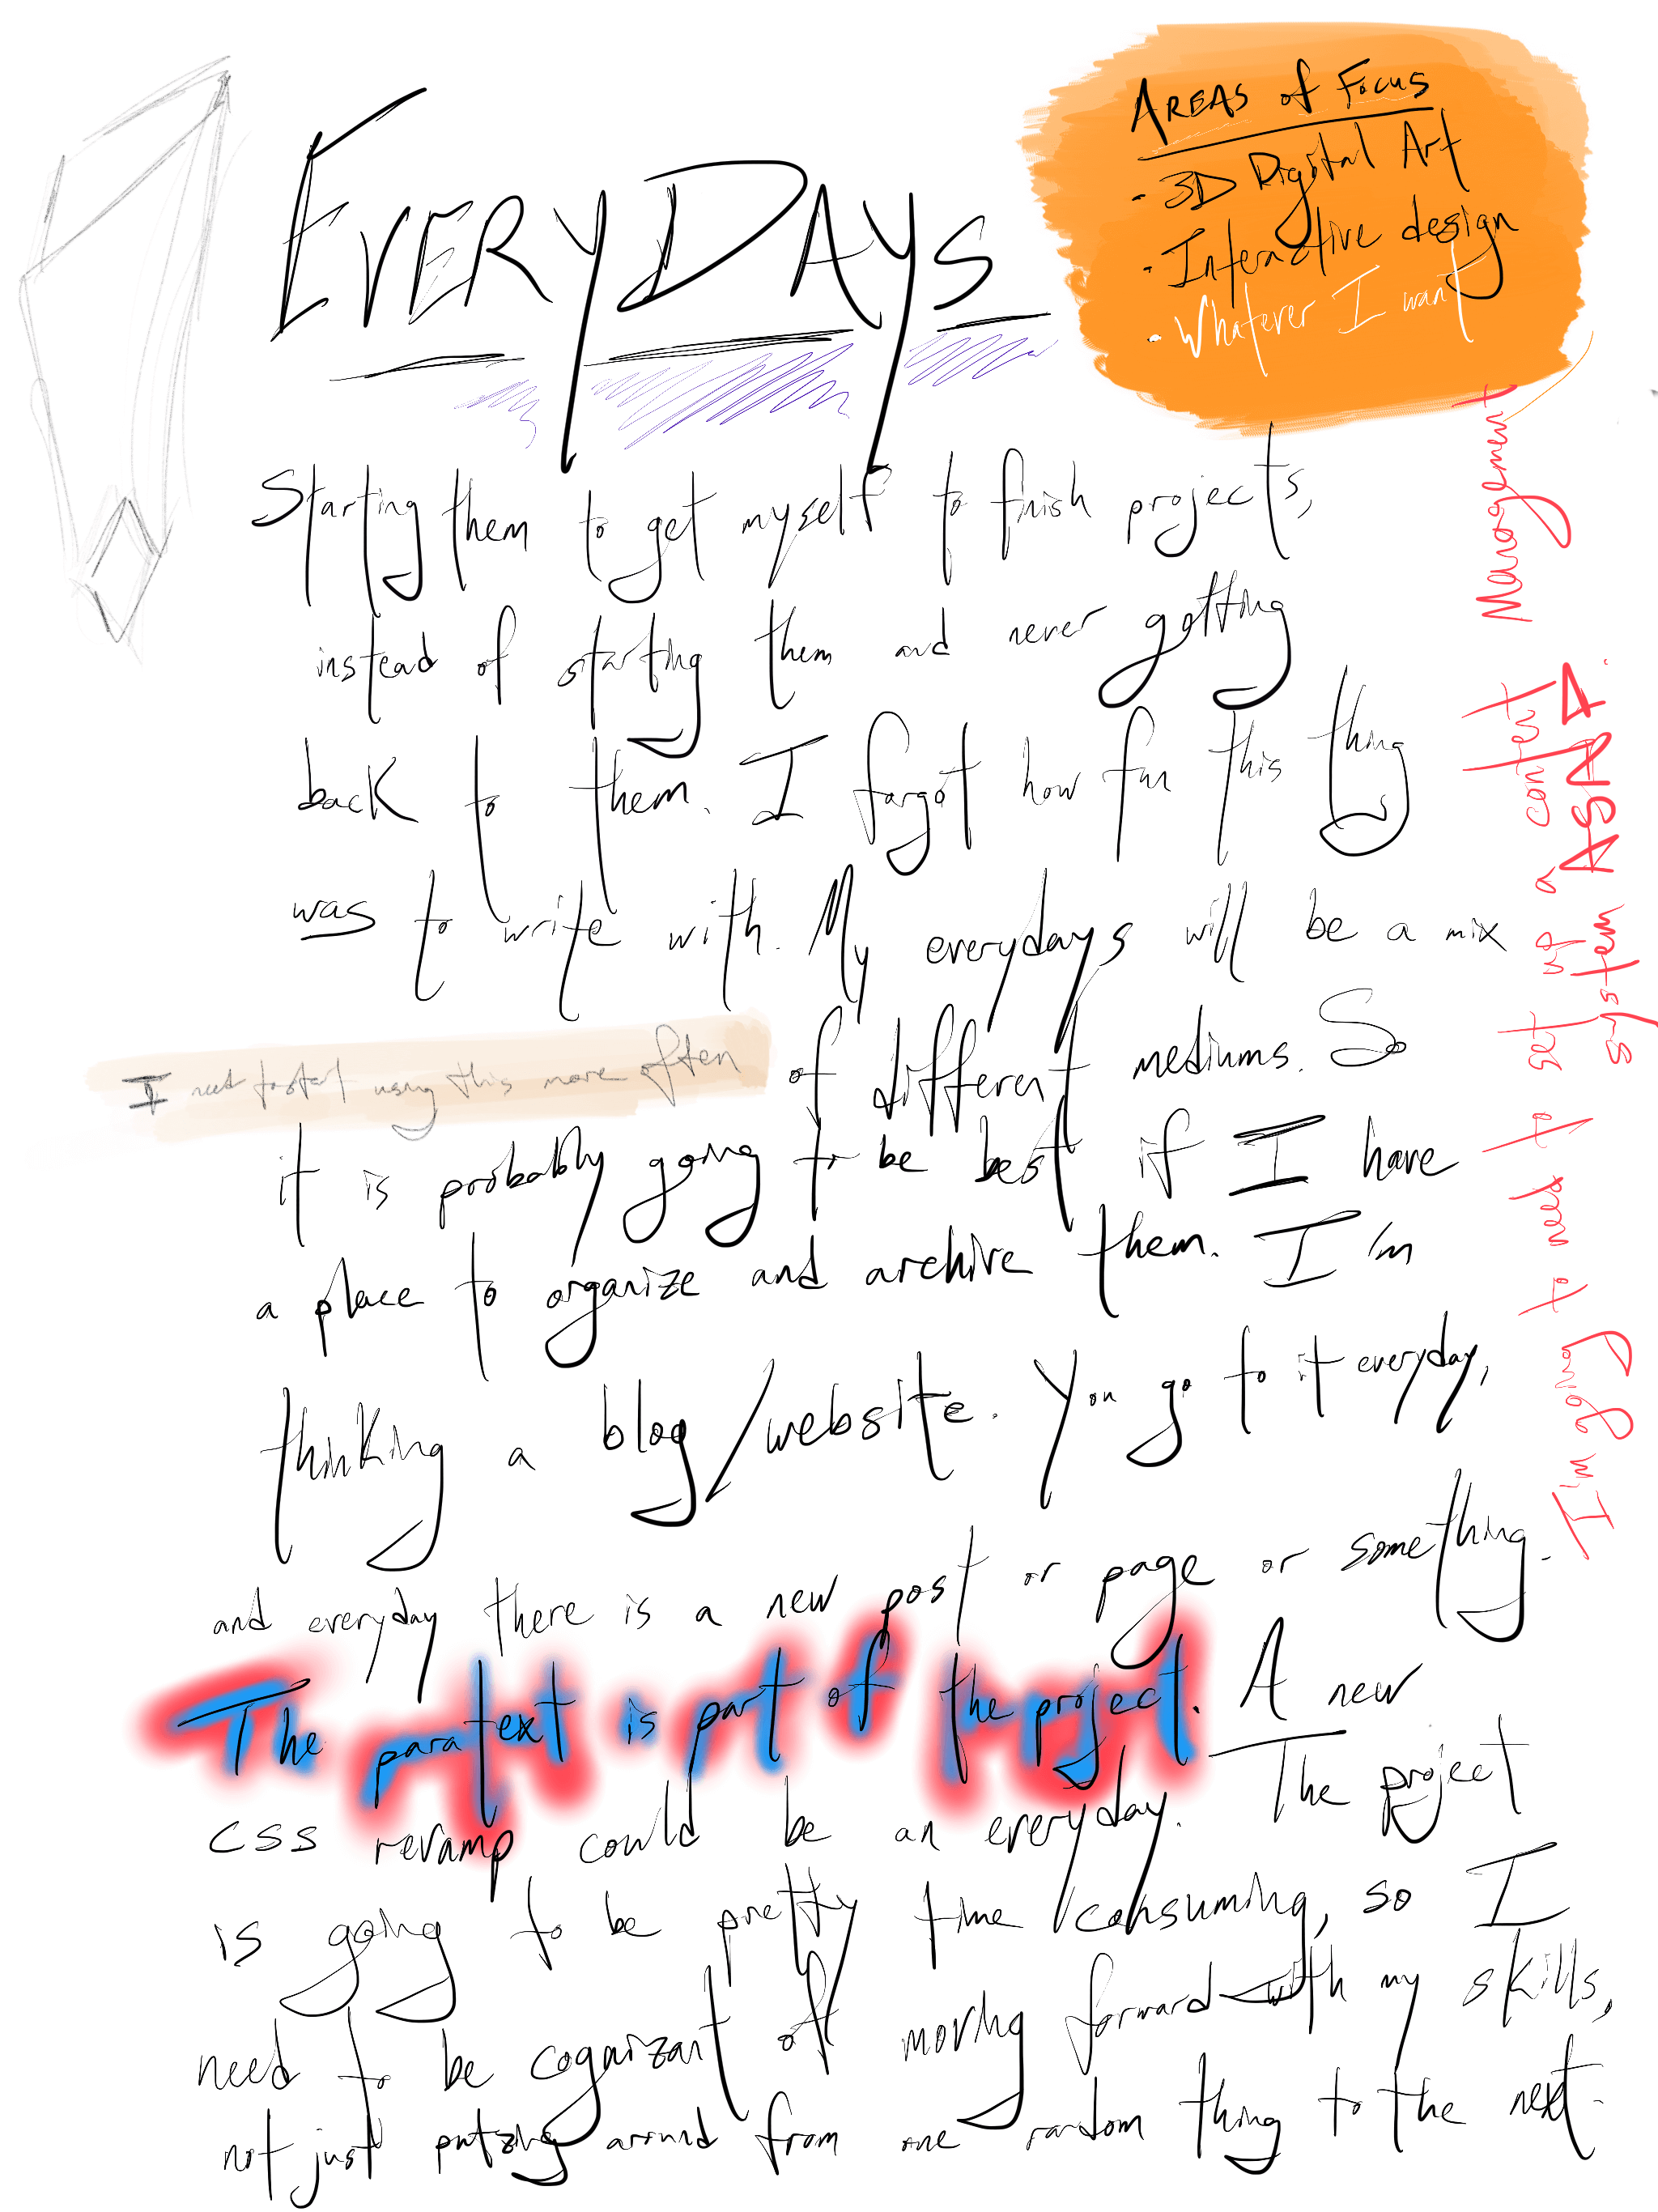 EVERYDAYS
AREAS of FOCUS
- 3D Digital Art
- Interactive design
- Whatever I want
Starting them to get myself to finish projects,
instead of starting them and never getting
back to them. I forgot how fun this thing
was to write with. My everydays will be a mix
I need to start using this more often
of different mediums. So
it is probably going to be best if I have
a place to organize and archive them. I'm
thinking a blog/website. You go to it everyday,
and everyday there is a new post or page or something.
The paratext is part of the project. A new
CSS revamp could be an everyday. The project
is going to be pretty time consuming, so I
need to be cognizant of moving forward with my skills,
not just putzing around from one random thing to the next.
I'm going to need to set up a content Management
system ASAP.